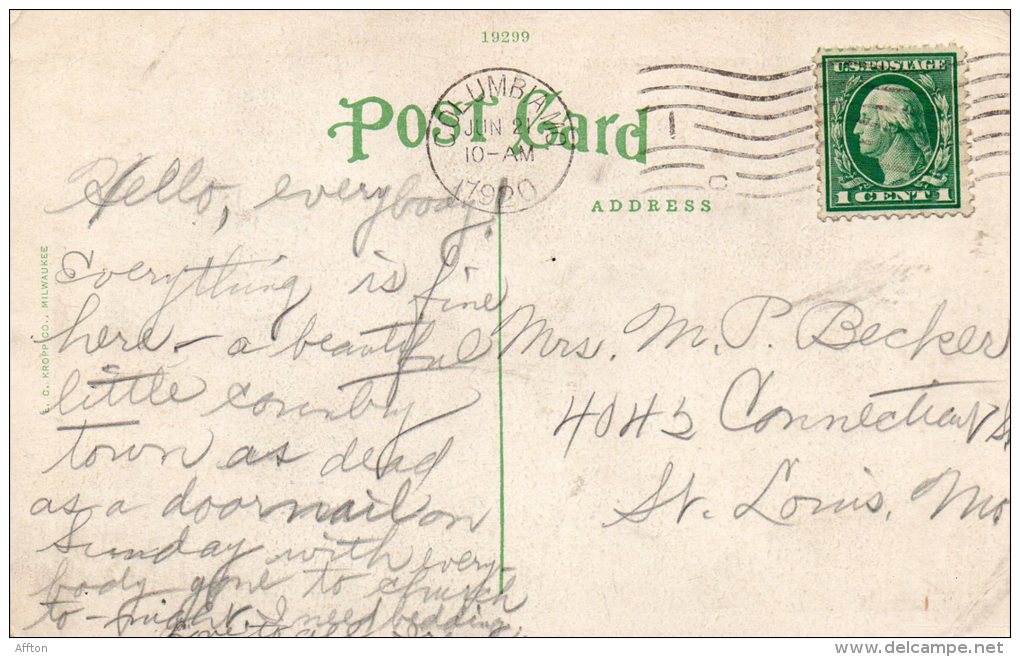 19299
Post Card
COLUMBIA MO
JUN 21
10-AM
1920
U.S. POSTAGE
1 CENT 1
ADDRESS
E. C. KROPP CO., MILWAUKEE
Hello, everybody!
Everything is fine
here - a beautiful
little country
town as dead
as a doornail on
Sunday with every-
body gone to church
to-night. I need bedding,
Mrs. M. P. Becker
4043 Connecticut St
St. Louis, Mo
Affton
delcampe.net